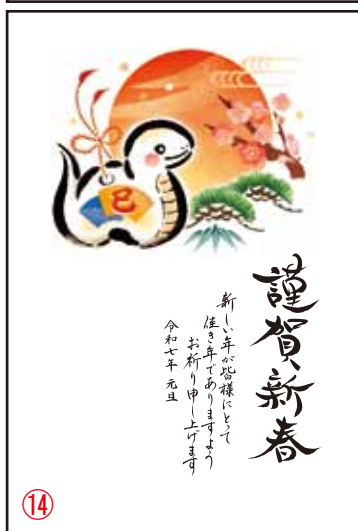 巳
謹賀新春
新しい年が皆様にとって
佳き年でありますよう
お祈り申し上げます
令和七年 元旦
⑭